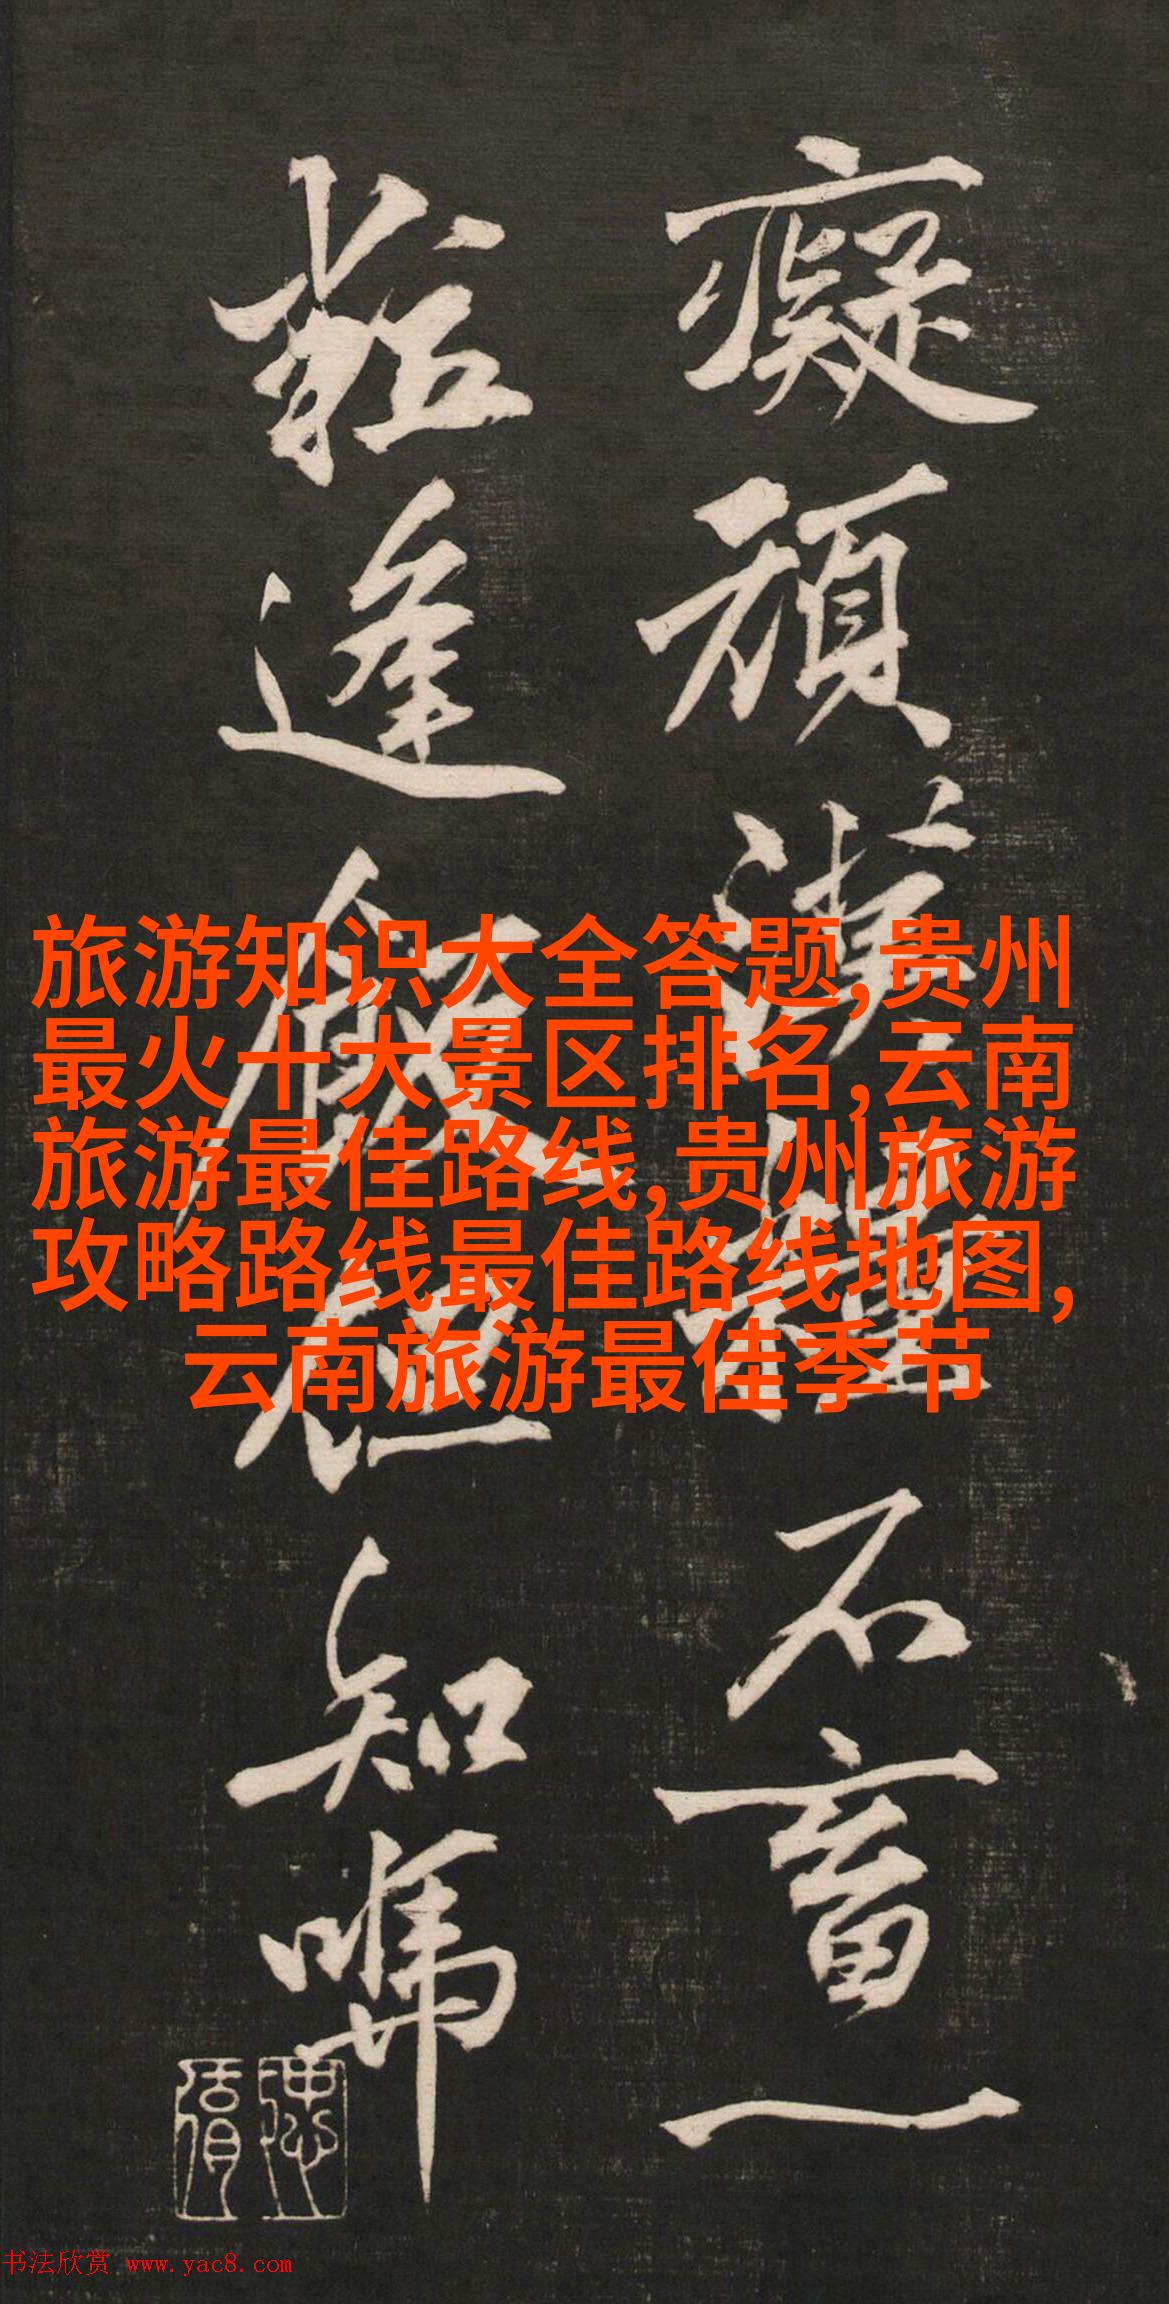 癡頑石畜一
逢飯但知
旅游知识大全答题,贵州
最火十大景区排名,云南
旅游最佳路线,贵州旅游
攻略路线最佳路线地图,
云南旅游最佳季节
书法欣赏 www.yac8.com